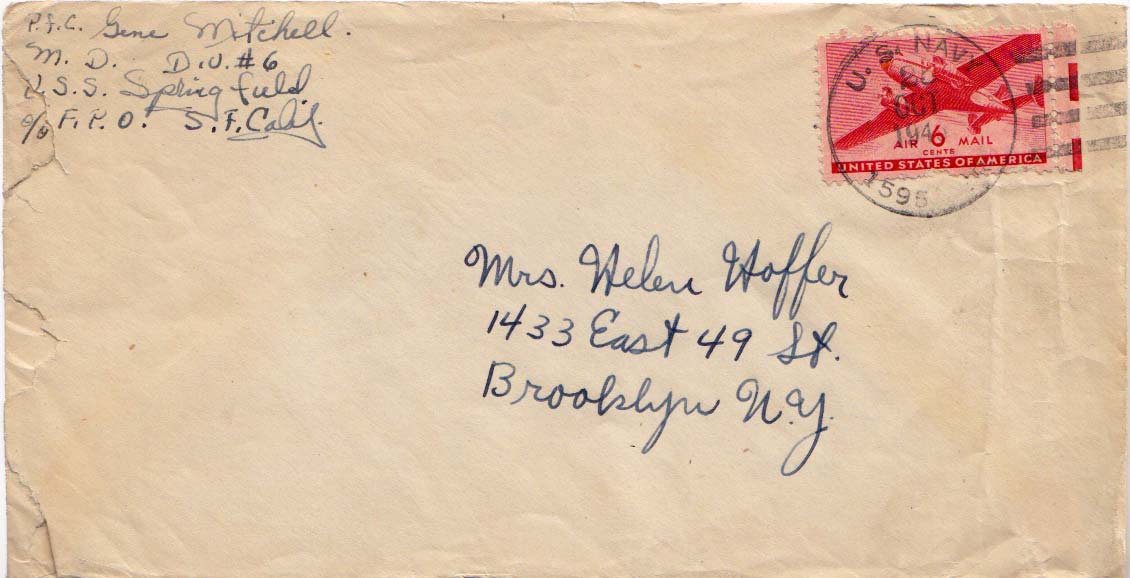 P.F.C. Gene Mitchell.
M. D. DIV. #6
U.S.S. Springfield
c/o F.P.O. S.F. Calif.
U.S. NAVY
OCT
1595
AIR 6 MAIL
CENTS
UNITED STATES OF AMERICA
Mrs. Helen Hoffer
1433 East 49 St.
Brooklyn N.Y.